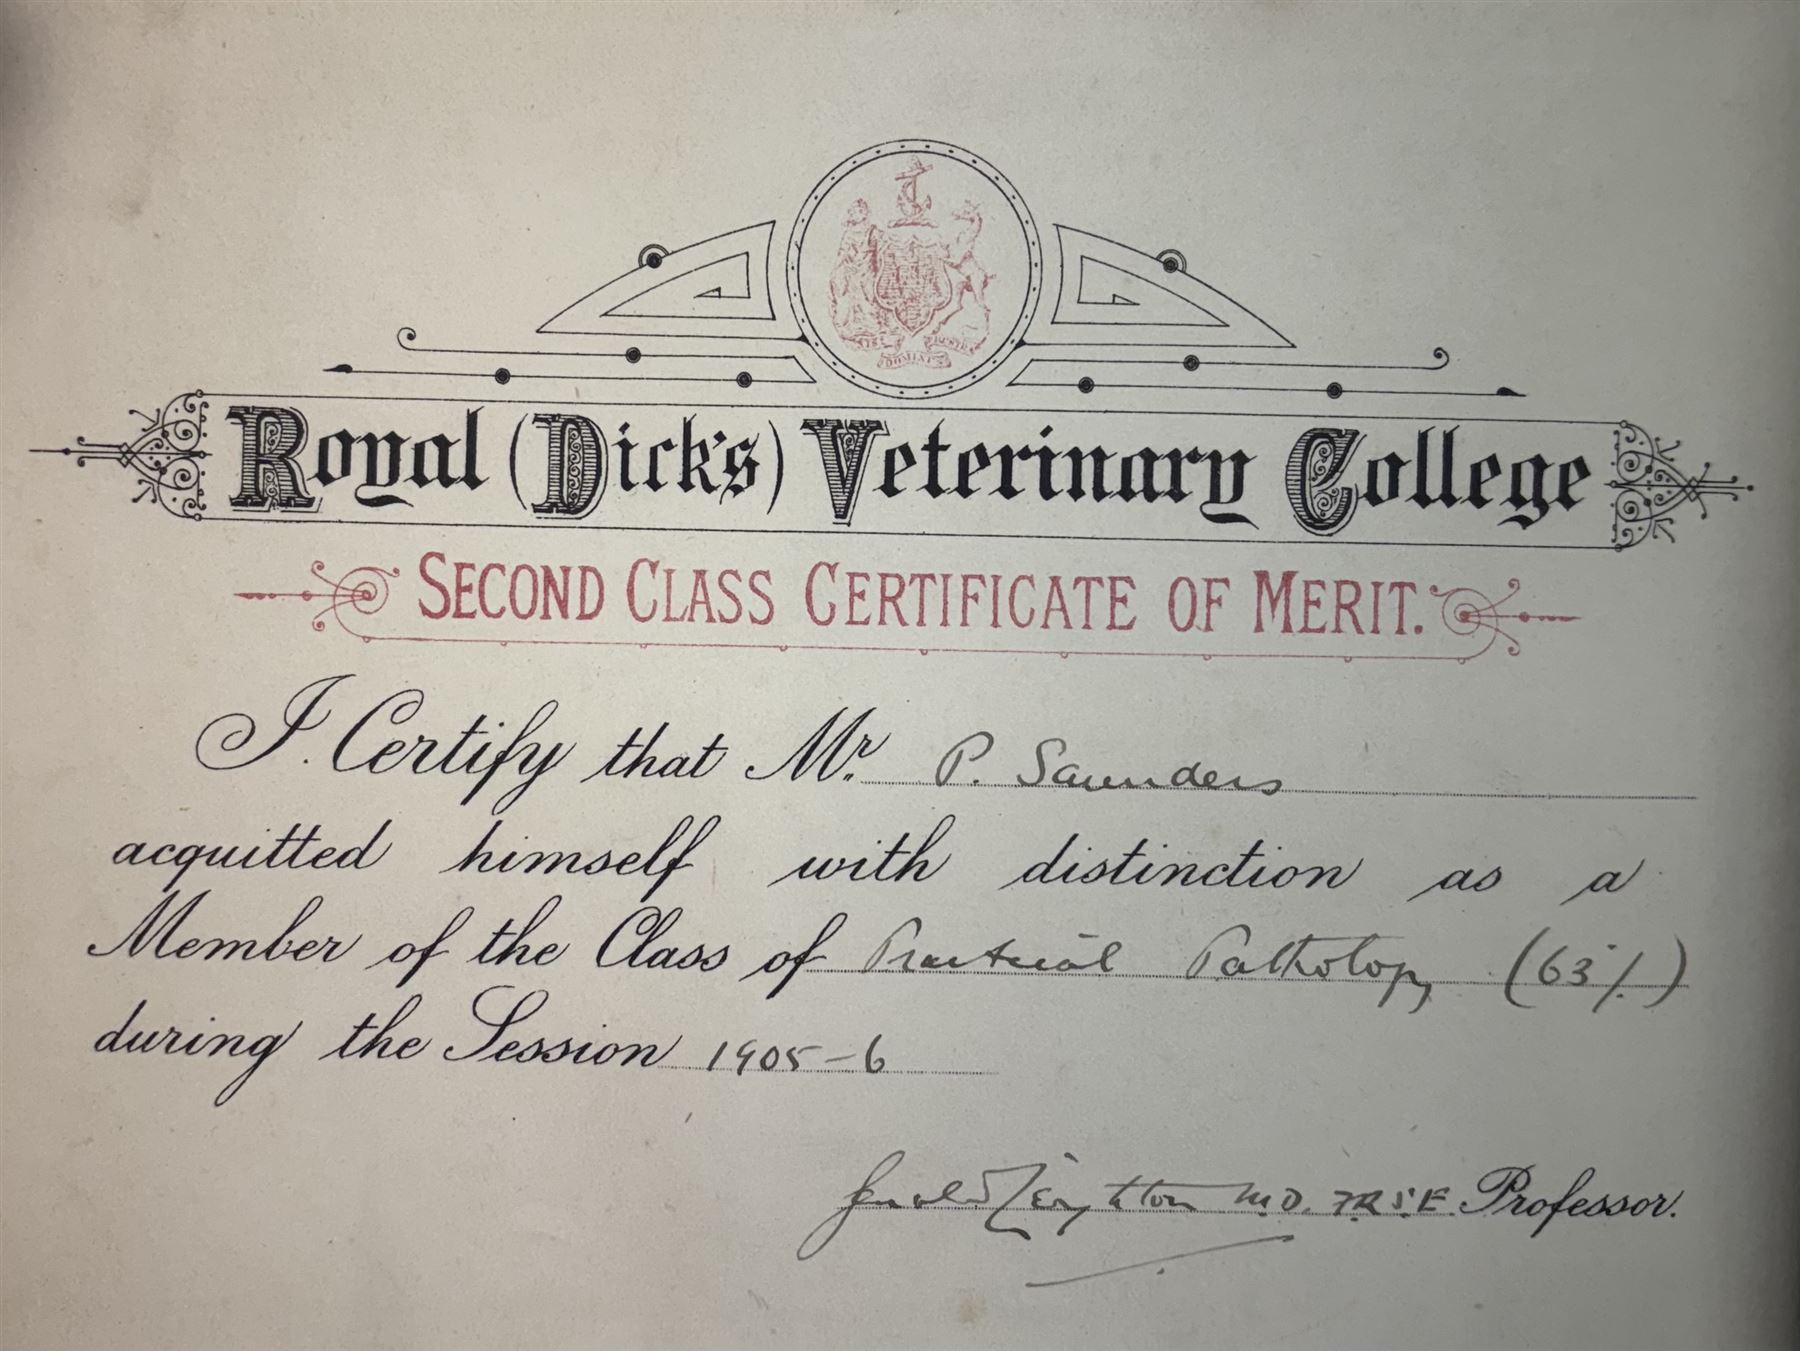 NISI DOMINUS FRUSTRA
Royal (Dick's) Veterinary College
SECOND CLASS CERTIFICATE OF MERIT.
I Certify that Mr. P. Saunders
acquitted himself with distinction as a
Member of the Class of Practical Pathology (63%)
during the Session 1905-6
Gerald Leighton M.D. F.R.S.E. Professor.